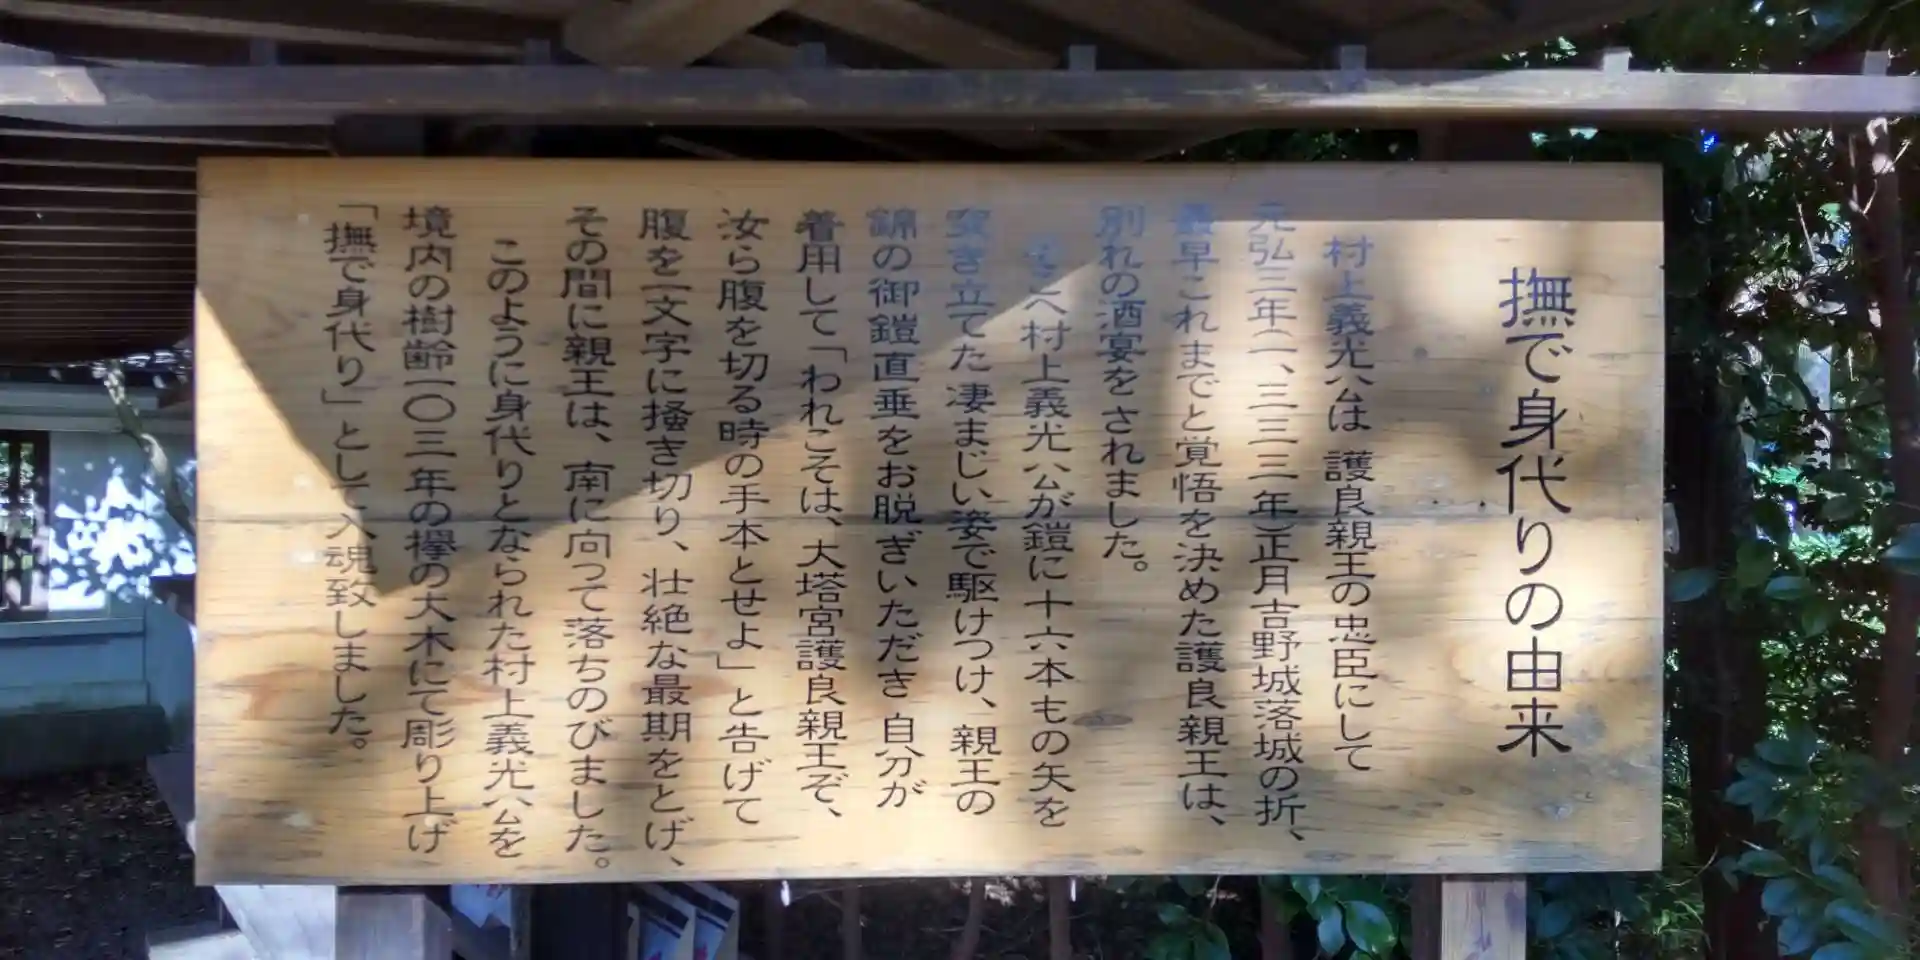 撫で身代りの由来
村上義光公は 護良親王の忠臣にして
元弘三年(一、三三三年)正月吉野城落城の折、
最早これまでと覚悟を決めた護良親王は、
別れの酒宴をされました。
そこへ村上義光公が鎧に十六本もの矢を
突き立てた凄まじい姿で駆けつけ、親王の
錦の御鎧直垂をお脱ぎいただき 自分が
着用して「われこそは、大塔宮護良親王ぞ、
汝ら腹を切る時の手本とせよ」と告げて
腹を一文字に掻き切り、壮絶な最期をとげ、
その間に親王は、南に向って落ちのびました。
このように身代りとなられた村上義光公を
境内の樹齢一〇三年の欅の大木にて彫り上げ
「撫で身代り」として入魂致しました。